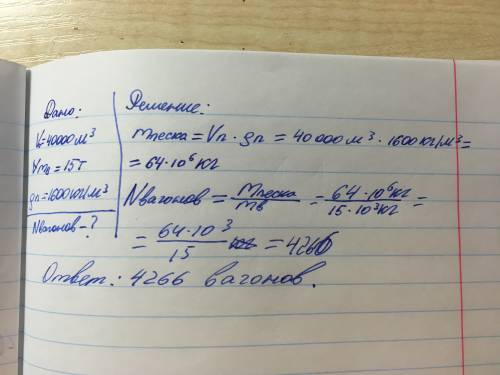 Дано:
V=40000 м³
mв=15т
ρп=1600кг/м³
Nвагонов-?
Решение:
mпеска=Vп·ρп = 40000м³·1600кг/м³=
=64·10⁶кг
Nвагонов = mпеска/mв = 64·10⁶кг/15·10³кг =
= 64·10³/15 = 4266
Ответ: 4266 вагонов.